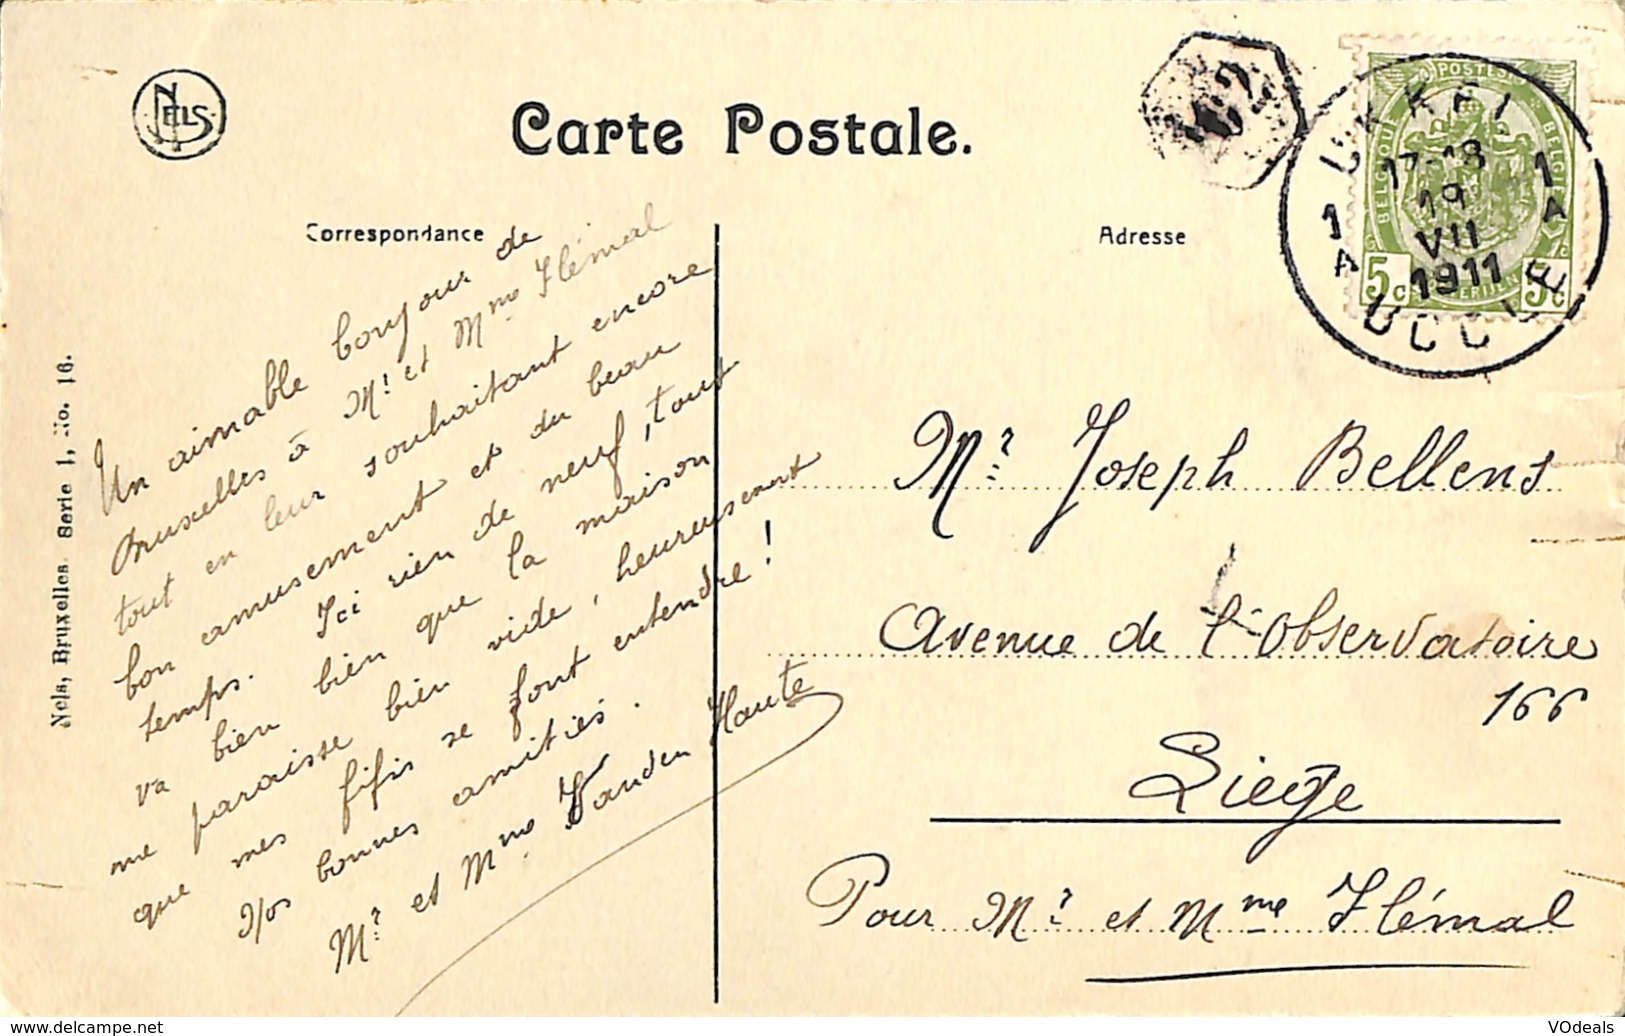 NELS
Carte Postale.
Correspondance
Adresse
Nels, Bruxelles. Serie 1, No. 16.
Un aimable bonjour de
Bruxelles à Mr et Mme Flémal
tout en leur souhaitant encore
bon amusement et du beau
temps. Ici rien de neuf, tout
va bien bien que la maison
me paraisse bien vide, heureusement
que mes fifis se font entendre!
Nos bonnes amitiés.
Mr et Mme Vanden Haute
POSTES
BELGIQUE
BELGIË
5c
5c
UKKEL
1A
1A
17-18
19
VII
1911
UCCLE
Mr Joseph Bellens
Avenue de l'Observatoire
166
Liege
Pour Mr et Mme Flémal
www.delcampe.net
VOdeals